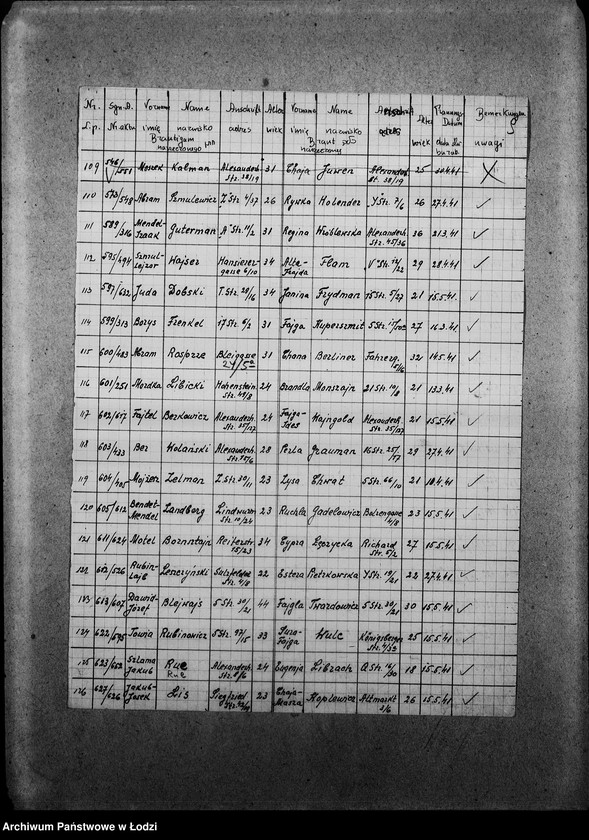 Nr. Sgn. A. Vorname Name Anschrift Alter Vorname Name Anschrift Alter Trauungs Datum Bemerkungen
L.p. Nr aktu imię nazwisko adres wiek imię nazwisko adres wiek data ślubu uwagi
Bräutigam Braut
109 546/551 Moszek Kalman Alexanderh. Str. 28/19 31 Chaja Juwen Alexanderh. St. 28/19 25 30.4.41 X
110 573/548 Abram Szmulewicz Z Str. 4/27 26 Rywka Holender Y Str. 7/6 26 27.4.41 ✓
111 589/316 Mendel-Izaak Guterman A Str. 11/2 31 Regina Wróblewska Alexanderh. Str. 45/36 36 21.3.41 ✓
112 595/494 Szmul-Lejzor Hajser Hanseatengasse 6/10 34 Alta-Frajda Flam V Str. 12/22 29 28.4.41 ✓
113 597/632 Juda Dobski T. Str. 28/16 34 Janina Frydman 15 Str. 5/27 21 15.5.41. ✓
114 599/313 Borys Frenkel 17 Str. 6/2 31 Fajga Kuperszmit 5 Str. 27 16.3.41 ✓
115 600/483 Abram Rasprze Bleigasse 24/5a 31 Chana Berliner Fahrerg. 5/16 32 14.5.41 ✓
116 601/251 Mordka Libicki Hohenstein Str. 49/8 24 Brandla Monszajn 21 Str. 10/8 21 13.3.41 ✓
117 602/617 Fajtel Berkowicz Alexanderh. Str. 35/127 24 Fajga-Ides Wajngold Alexanderh. Str. 35/127 21 15.5.41 ✓
118 603/433 Ber Wolański Alexanderh. Str. 28 Perla Grauman 16 Str. 25/17 29 27.4.41 ✓
119 604/405 Mojżesz Zelman Z. Str. 30/11 23 Lysa Chwat 5 Str. 66/10 21 18.4.41 ✓
120 605/612 Bendet-Mendel Landberg Lindwurm Str. 10/24 23 Ruchla Gadelowicz Bolzengasse 4/8 23 15.5.41 ✓
121 611/624 Motel Bornsztajn Reiterstr. 15/23 34 Cypra Łęczycka Richard Str. 5/2 27 15.5.41 ✓
122 612/526 Rubin-Lajb Leszczyński Sulzfelder Str. 4/8 22 Estera Pietrkowska Y Str. 19/21 22 27.4.41 ✓
123 613/607 Dawid-Józef Blejwajs 5 Str. 30/21 44 Fajgla Twardowicz 5 Str. 30/21 30 15.5.41 ✓
124 622/595 Towja Rubinowicz 5 Str. 97/15 33 Sura-Fajga Wulc Königsberger Str. 4/33 25 15.5.41 ✓
125 623/652 Szlama Jakub Rue Rue Alexanderh. Str. 8/6 24 Eugenja Librach A Str. 16/30 18 15.5.41 ✓
126 627/626 Jakub-Josek Lis Siegfried Str. 23 Chaja-Masza Koplewicz Altmarkt 2/6 26 15.5.41 ✓
Archiwum Państwowe w Łodzi